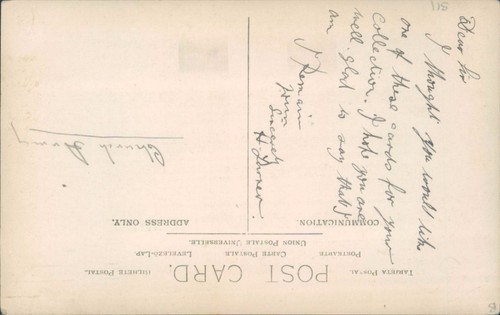 Dear Sir
I thought you would like
one of these cards for your
Collection. I hope you are
well. glad to say that I
am
I Remain
Yours
Sincerely
H Turner.
Church Army
COMMUNICATION.
ADDRESS ONLY.
UNION POSTALE UNIVERSELLE.
POSTKARTE CARTE POSTALE. LEVELEZÖ-LAP.
TARJETA POSTAL BILHETE POSTAL.
POST CARD.